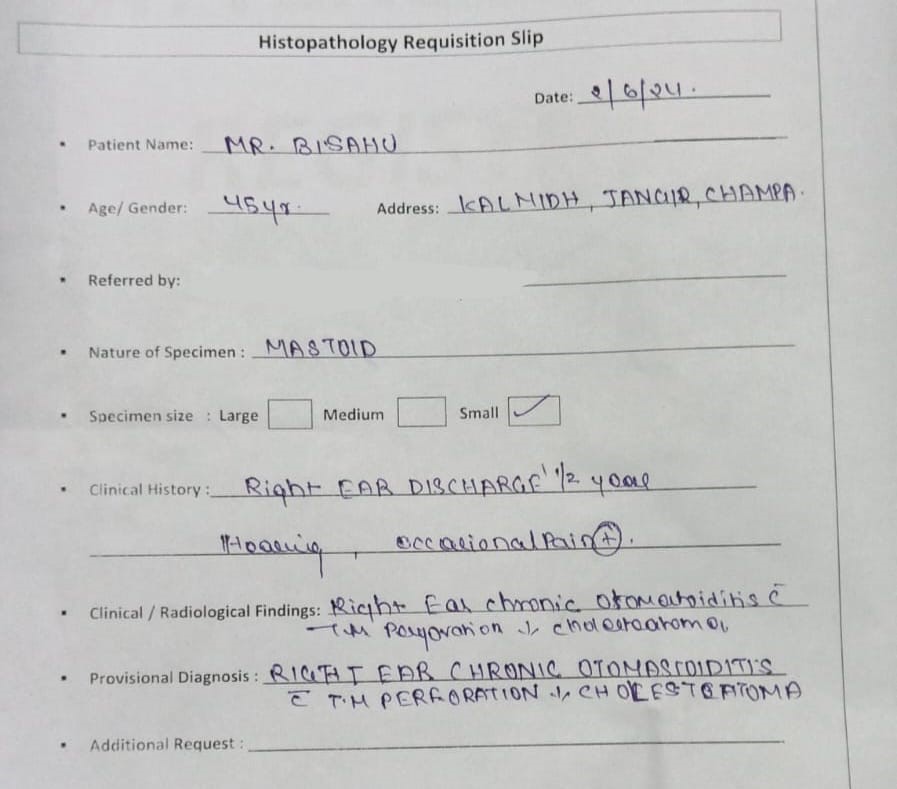 Histopathology Requisition Slip
Date: 2/6/24.
• Patient Name: MR. BISAHU
• Age/ Gender: 45yr. Address: KALMIDH, JANGIR, CHAMPA.
• Referred by:
• Nature of Specimen : MASTOID
• Specimen size : Large Medium Small ✓
• Clinical History : Right EAR DISCHARGE 1 1/2 year
↓Hearing, occasional Pain ⊕.
• Clinical / Radiological Findings: Right Ear chronic otomastoiditis c̄
T.M Perforation cholesteatoma
• Provisional Diagnosis : RIGHT EAR CHRONIC OTOMASTOIDITIS
c̄ T.M PERFORATION CHOLESTEATOMA
• Additional Request :